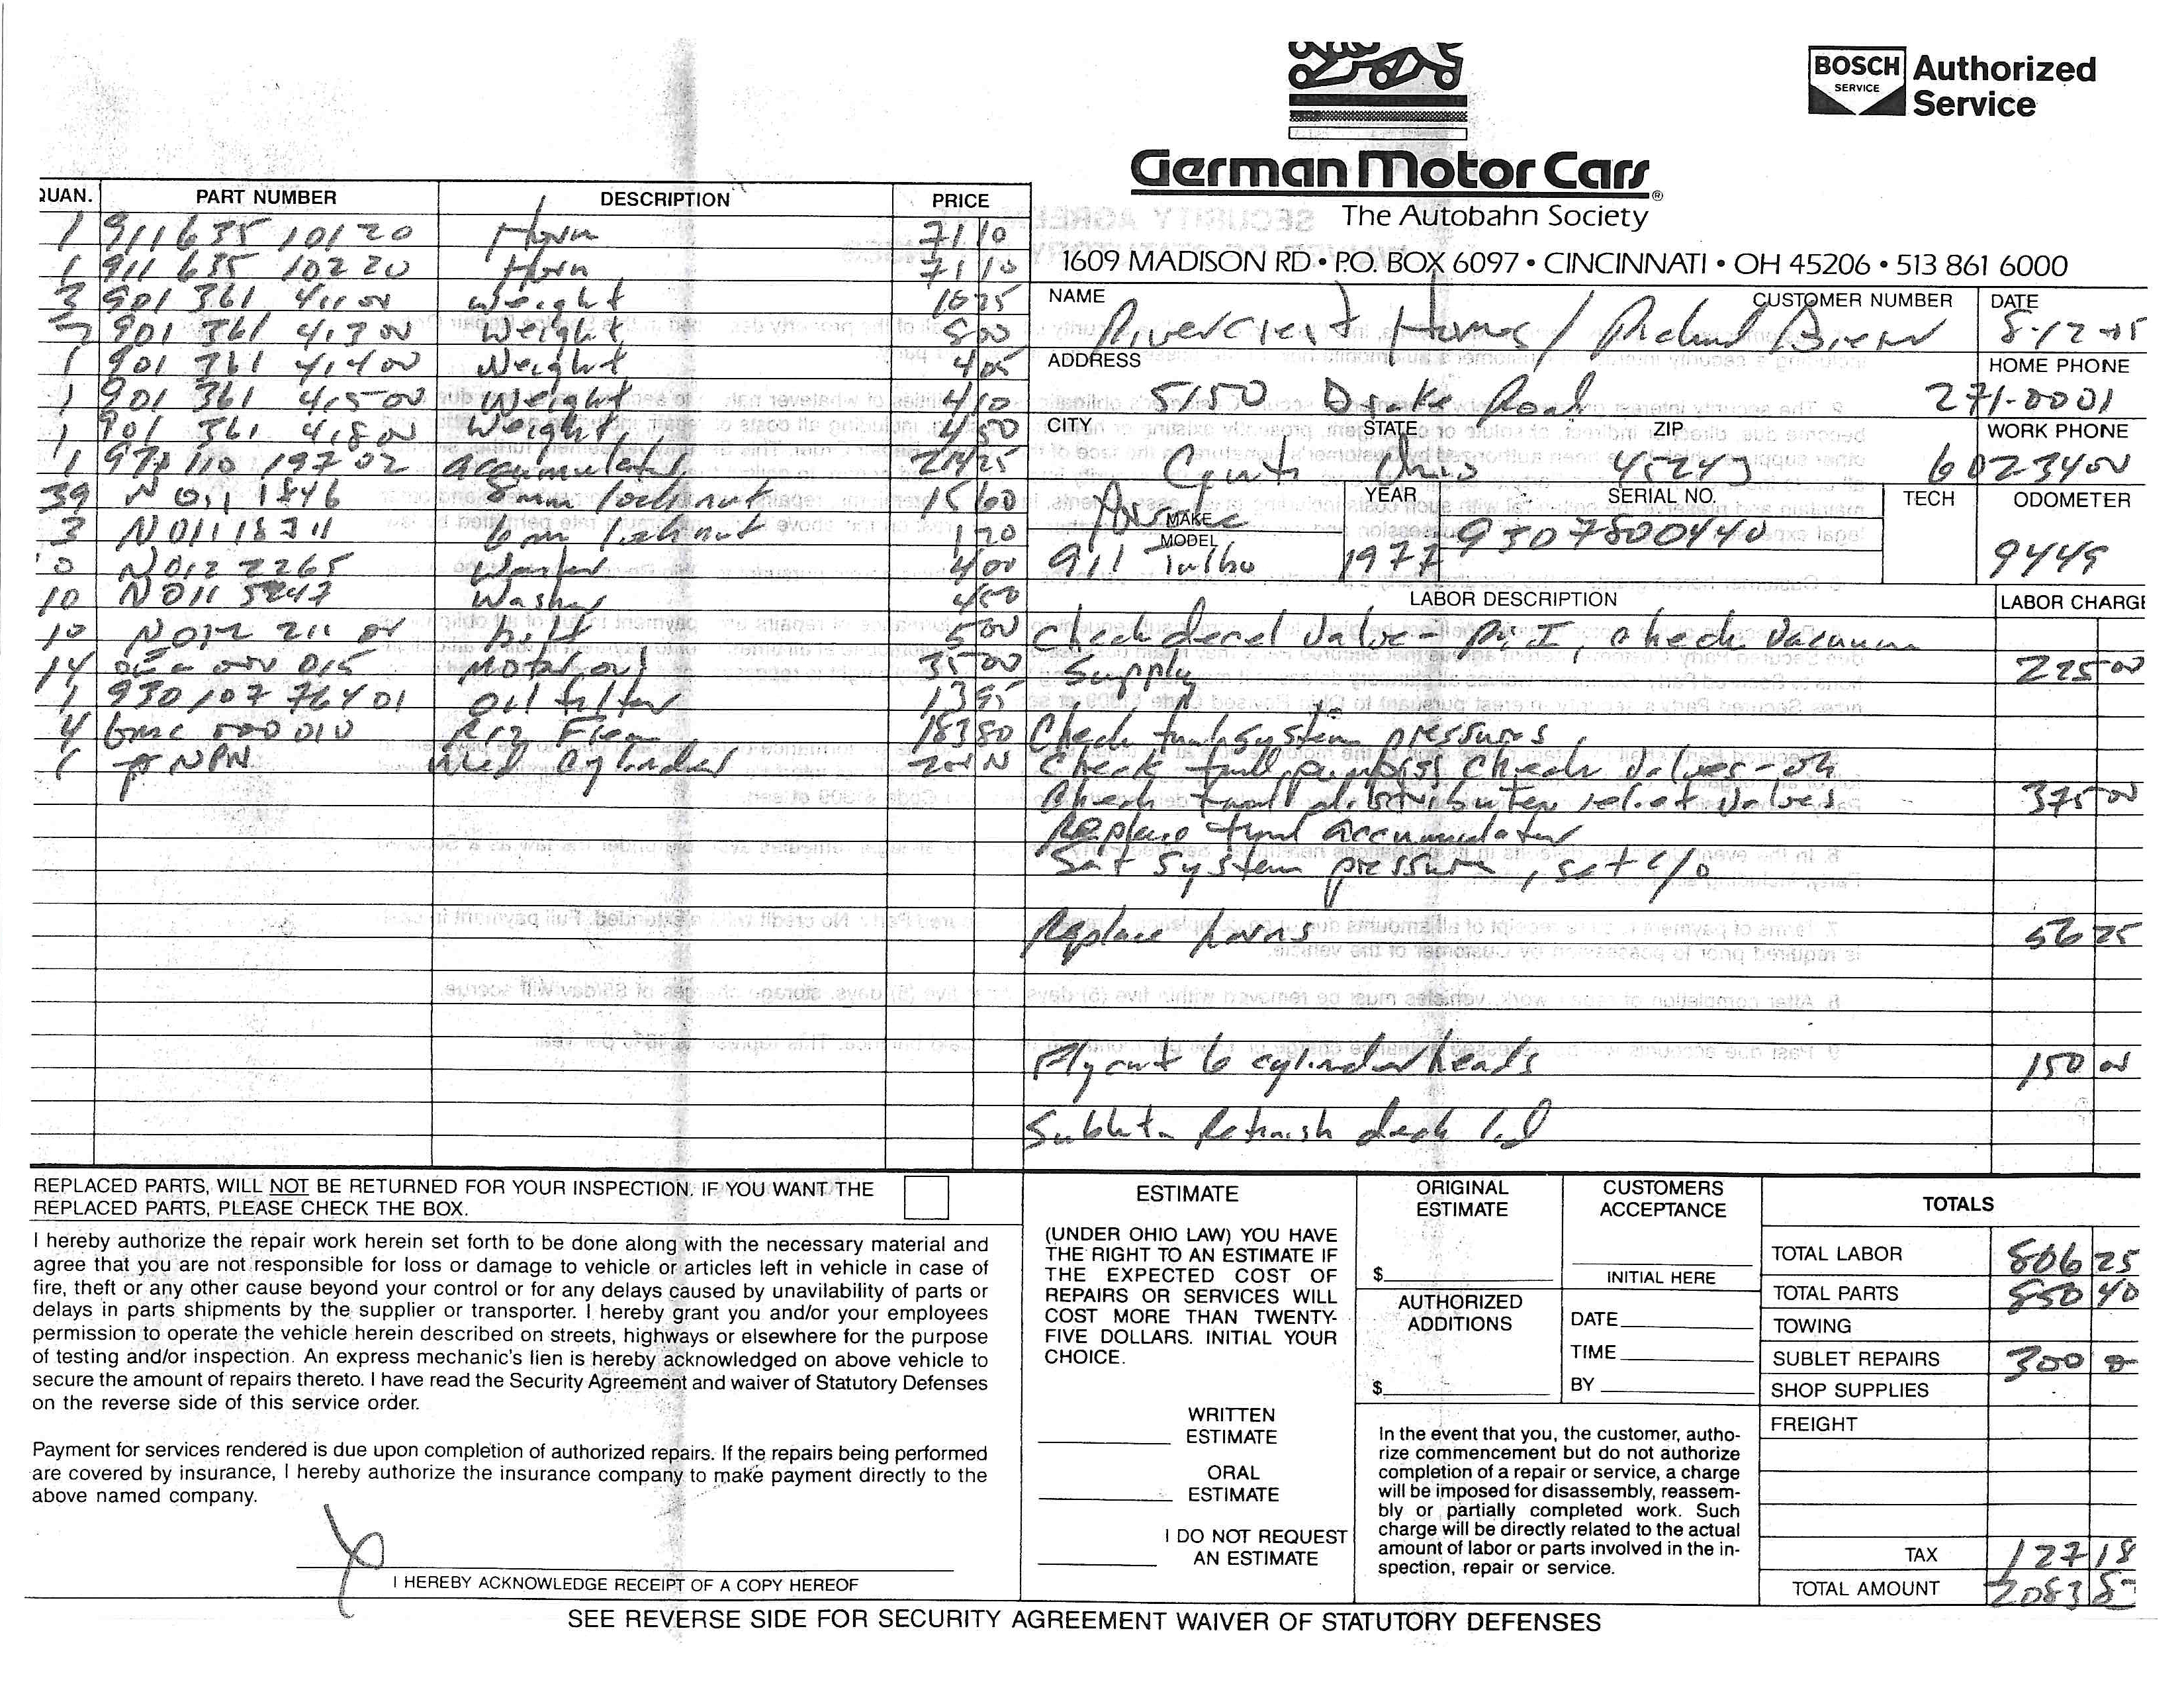 BOSCH SERVICE Authorized Service
German Motor Cars®
The Autobahn Society
1609 MADISON RD • P.O. BOX 6097 • CINCINNATI • OH 45206 • 513 861 6000
QUAN. PART NUMBER DESCRIPTION PRICE
1 911 635 101 20 Horn 71 10
1 911 635 102 20 Horn 71 10
3 901 361 411 00 Weight 16 25
2 901 361 413 00 Weight 8 00
1 901 361 414 00 Weight 4 05
1 901 361 415 00 Weight 4 10
1 901 361 418 00 Weight 4 50
1 928 110 197 02 accumulator 214 25
39 N 011 1846 8mm locknut 15 60
3 N 011 183 11 6m locknut 1 20
0 N 012 2265 Washer 4 00
10 N 011 5247 Washer 4 00
10 N 012 211 01 bolt 5 00
14 015 Motor oil 35 00
1 930 107 764 01 oil filter 13 95
4 GMC 500 010 R12 Freon 183 80
1 NPN Cylinder
NAME Rivercrest Homes / Richard
CUSTOMER NUMBER
DATE 8-12-
ADDRESS 5150 Drake Road
HOME PHONE 271-0001
CITY Cinti STATE Ohio ZIP 45243
WORK PHONE 6023400
MAKE Porsche YEAR SERIAL NO. TECH ODOMETER
MODEL 911 Turbo 1977 9307800440 9449
LABOR DESCRIPTION LABOR CHARGE
Check decel Valve - , check Vacuum
Supply 225 00
Check fuel system pressures,
Check fuel pumps check valves - ok
Check fuel distributor relief valves 375 00
Replace fuel accumulator
Set system pressure, set c/o
Replace horns 56 25
Flycut 6 cylinder heads 150 00
Sublet Refinish deck lid
REPLACED PARTS, WILL NOT BE RETURNED FOR YOUR INSPECTION. IF YOU WANT THE
REPLACED PARTS, PLEASE CHECK THE BOX.
I hereby authorize the repair work herein set forth to be done along with the necessary material and
agree that you are not responsible for loss or damage to vehicle or articles left in vehicle in case of
fire, theft or any other cause beyond your control or for any delays caused by unavailability of parts or
delays in parts shipments by the supplier or transporter. I hereby grant you and/or your employees
permission to operate the vehicle herein described on streets, highways or elsewhere for the purpose
of testing and/or inspection. An express mechanic's lien is hereby acknowledged on above vehicle to
secure the amount of repairs thereto. I have read the Security Agreement and waiver of Statutory Defenses
on the reverse side of this service order.
Payment for services rendered is due upon completion of authorized repairs. If the repairs being performed
are covered by insurance, I hereby authorize the insurance company to make payment directly to the
above named company.
X
I HEREBY ACKNOWLEDGE RECEIPT OF A COPY HEREOF
ESTIMATE
(UNDER OHIO LAW) YOU HAVE
THE RIGHT TO AN ESTIMATE IF
THE EXPECTED COST OF
REPAIRS OR SERVICES WILL
COST MORE THAN TWENTY-
FIVE DOLLARS. INITIAL YOUR
CHOICE.
WRITTEN
ESTIMATE
ORAL
ESTIMATE
I DO NOT REQUEST
AN ESTIMATE
ORIGINAL
ESTIMATE
$
AUTHORIZED
ADDITIONS
$
CUSTOMERS
ACCEPTANCE
INITIAL HERE
DATE
TIME
BY
In the event that you, the customer, autho-
rize commencement but do not authorize
completion of a repair or service, a charge
will be imposed for disassembly, reassem-
bly or partially completed work. Such
charge will be directly related to the actual
amount of labor or parts involved in the in-
spection, repair or service.
TOTALS
TOTAL LABOR 806 25
TOTAL PARTS 850 40
TOWING
SUBLET REPAIRS 300 0
SHOP SUPPLIES
FREIGHT
TAX 127 18
TOTAL AMOUNT 2083 8
SEE REVERSE SIDE FOR SECURITY AGREEMENT WAIVER OF STATUTORY DEFENSES